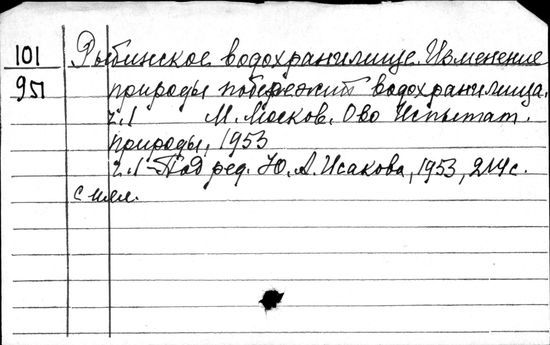 101 Рыбинское водохранилище. Изменение
95 природы побережий водохранилища.
ч.1 М. Москов. О-во Испытат.
природы, 1953
ч.1 Под ред. Ю. А. Исакова, 1953, 214 с.
с илл.